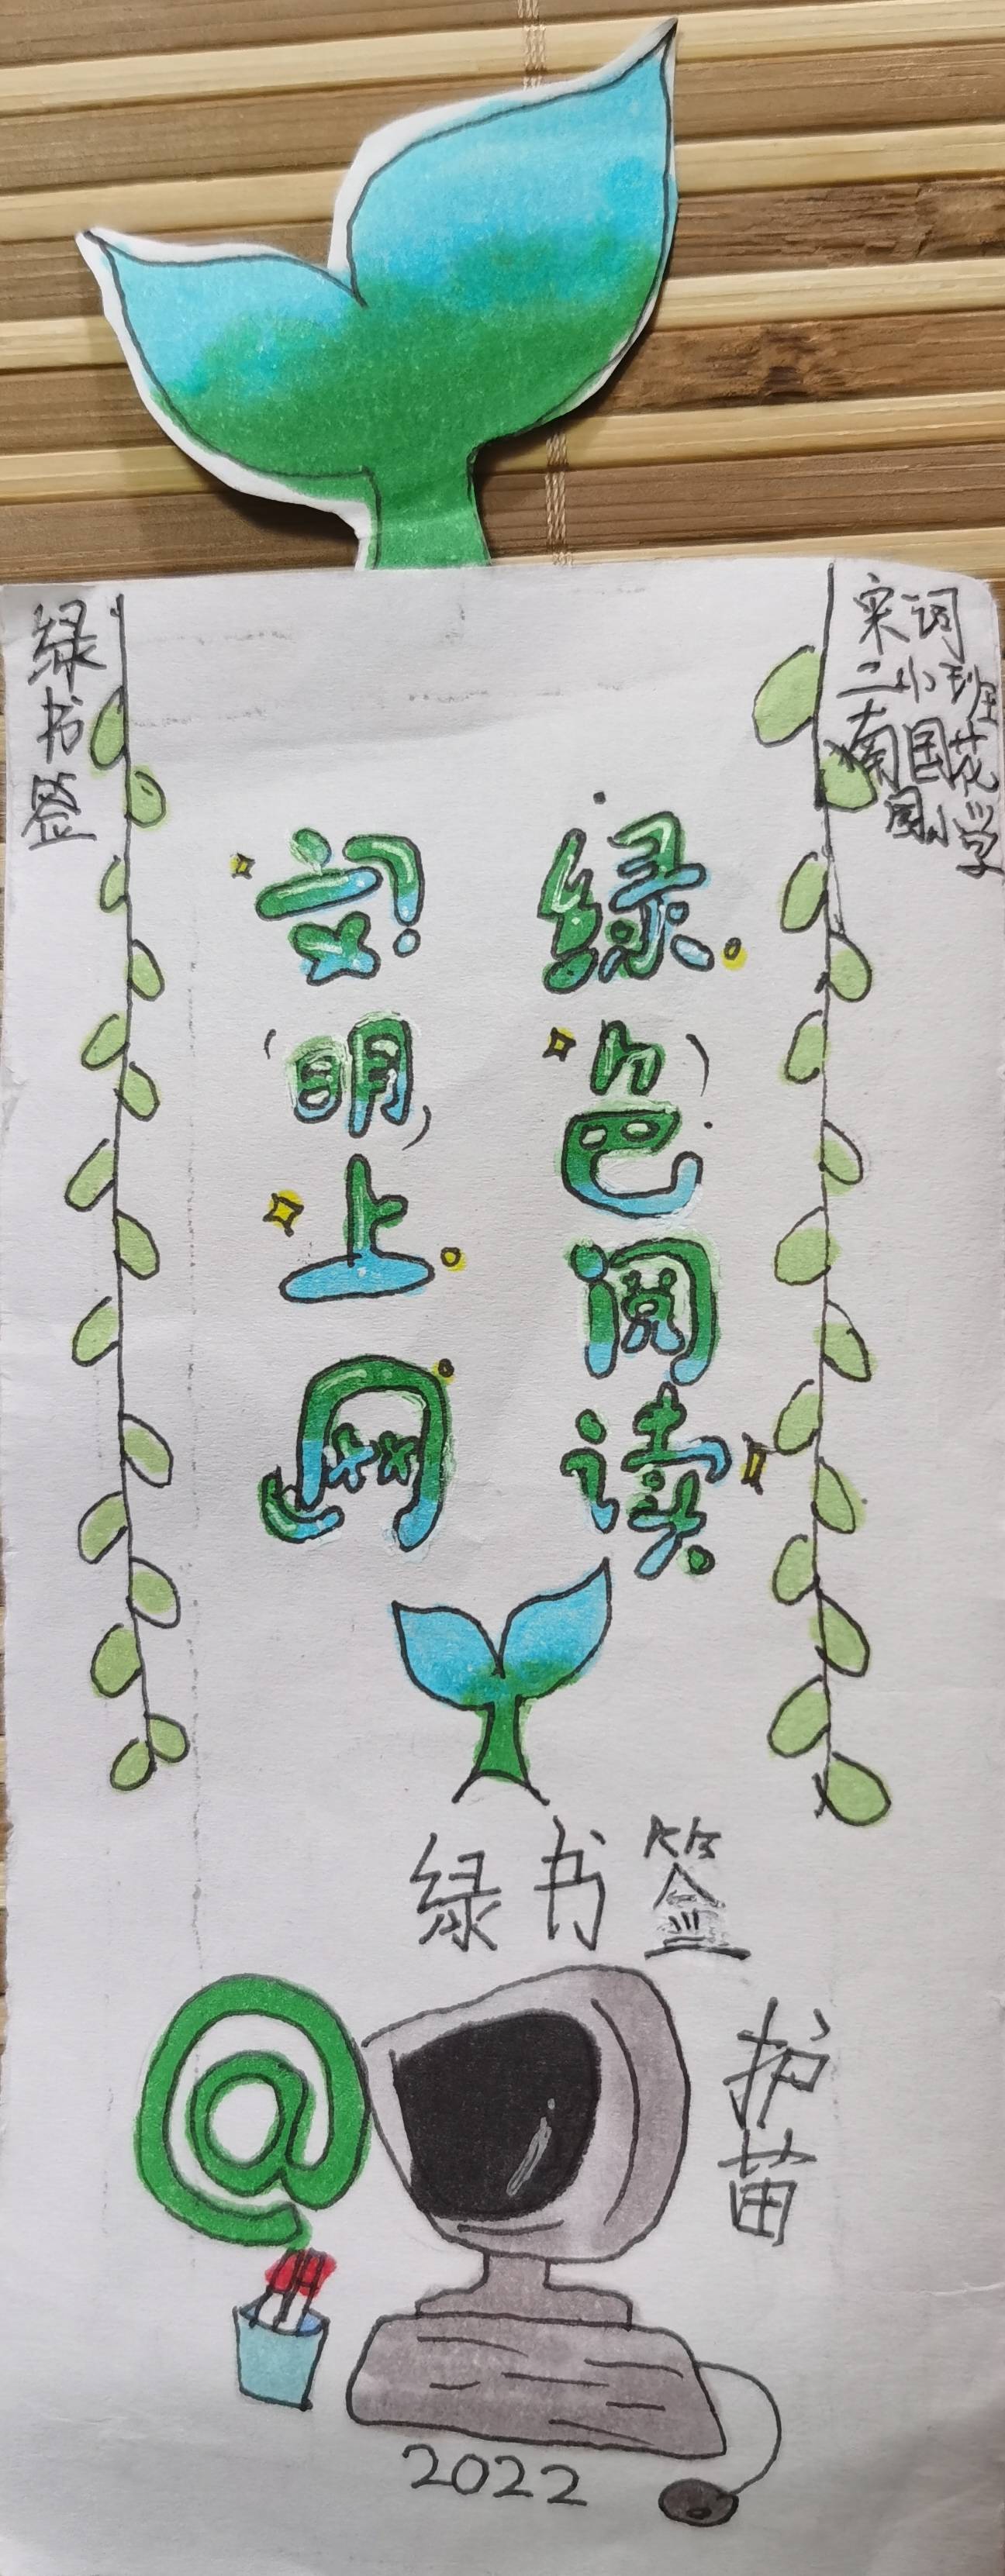 绿书签
宋词
二小班
南国花
园小学
绿色阅读
文明上网
绿书签
@
护苗
2022